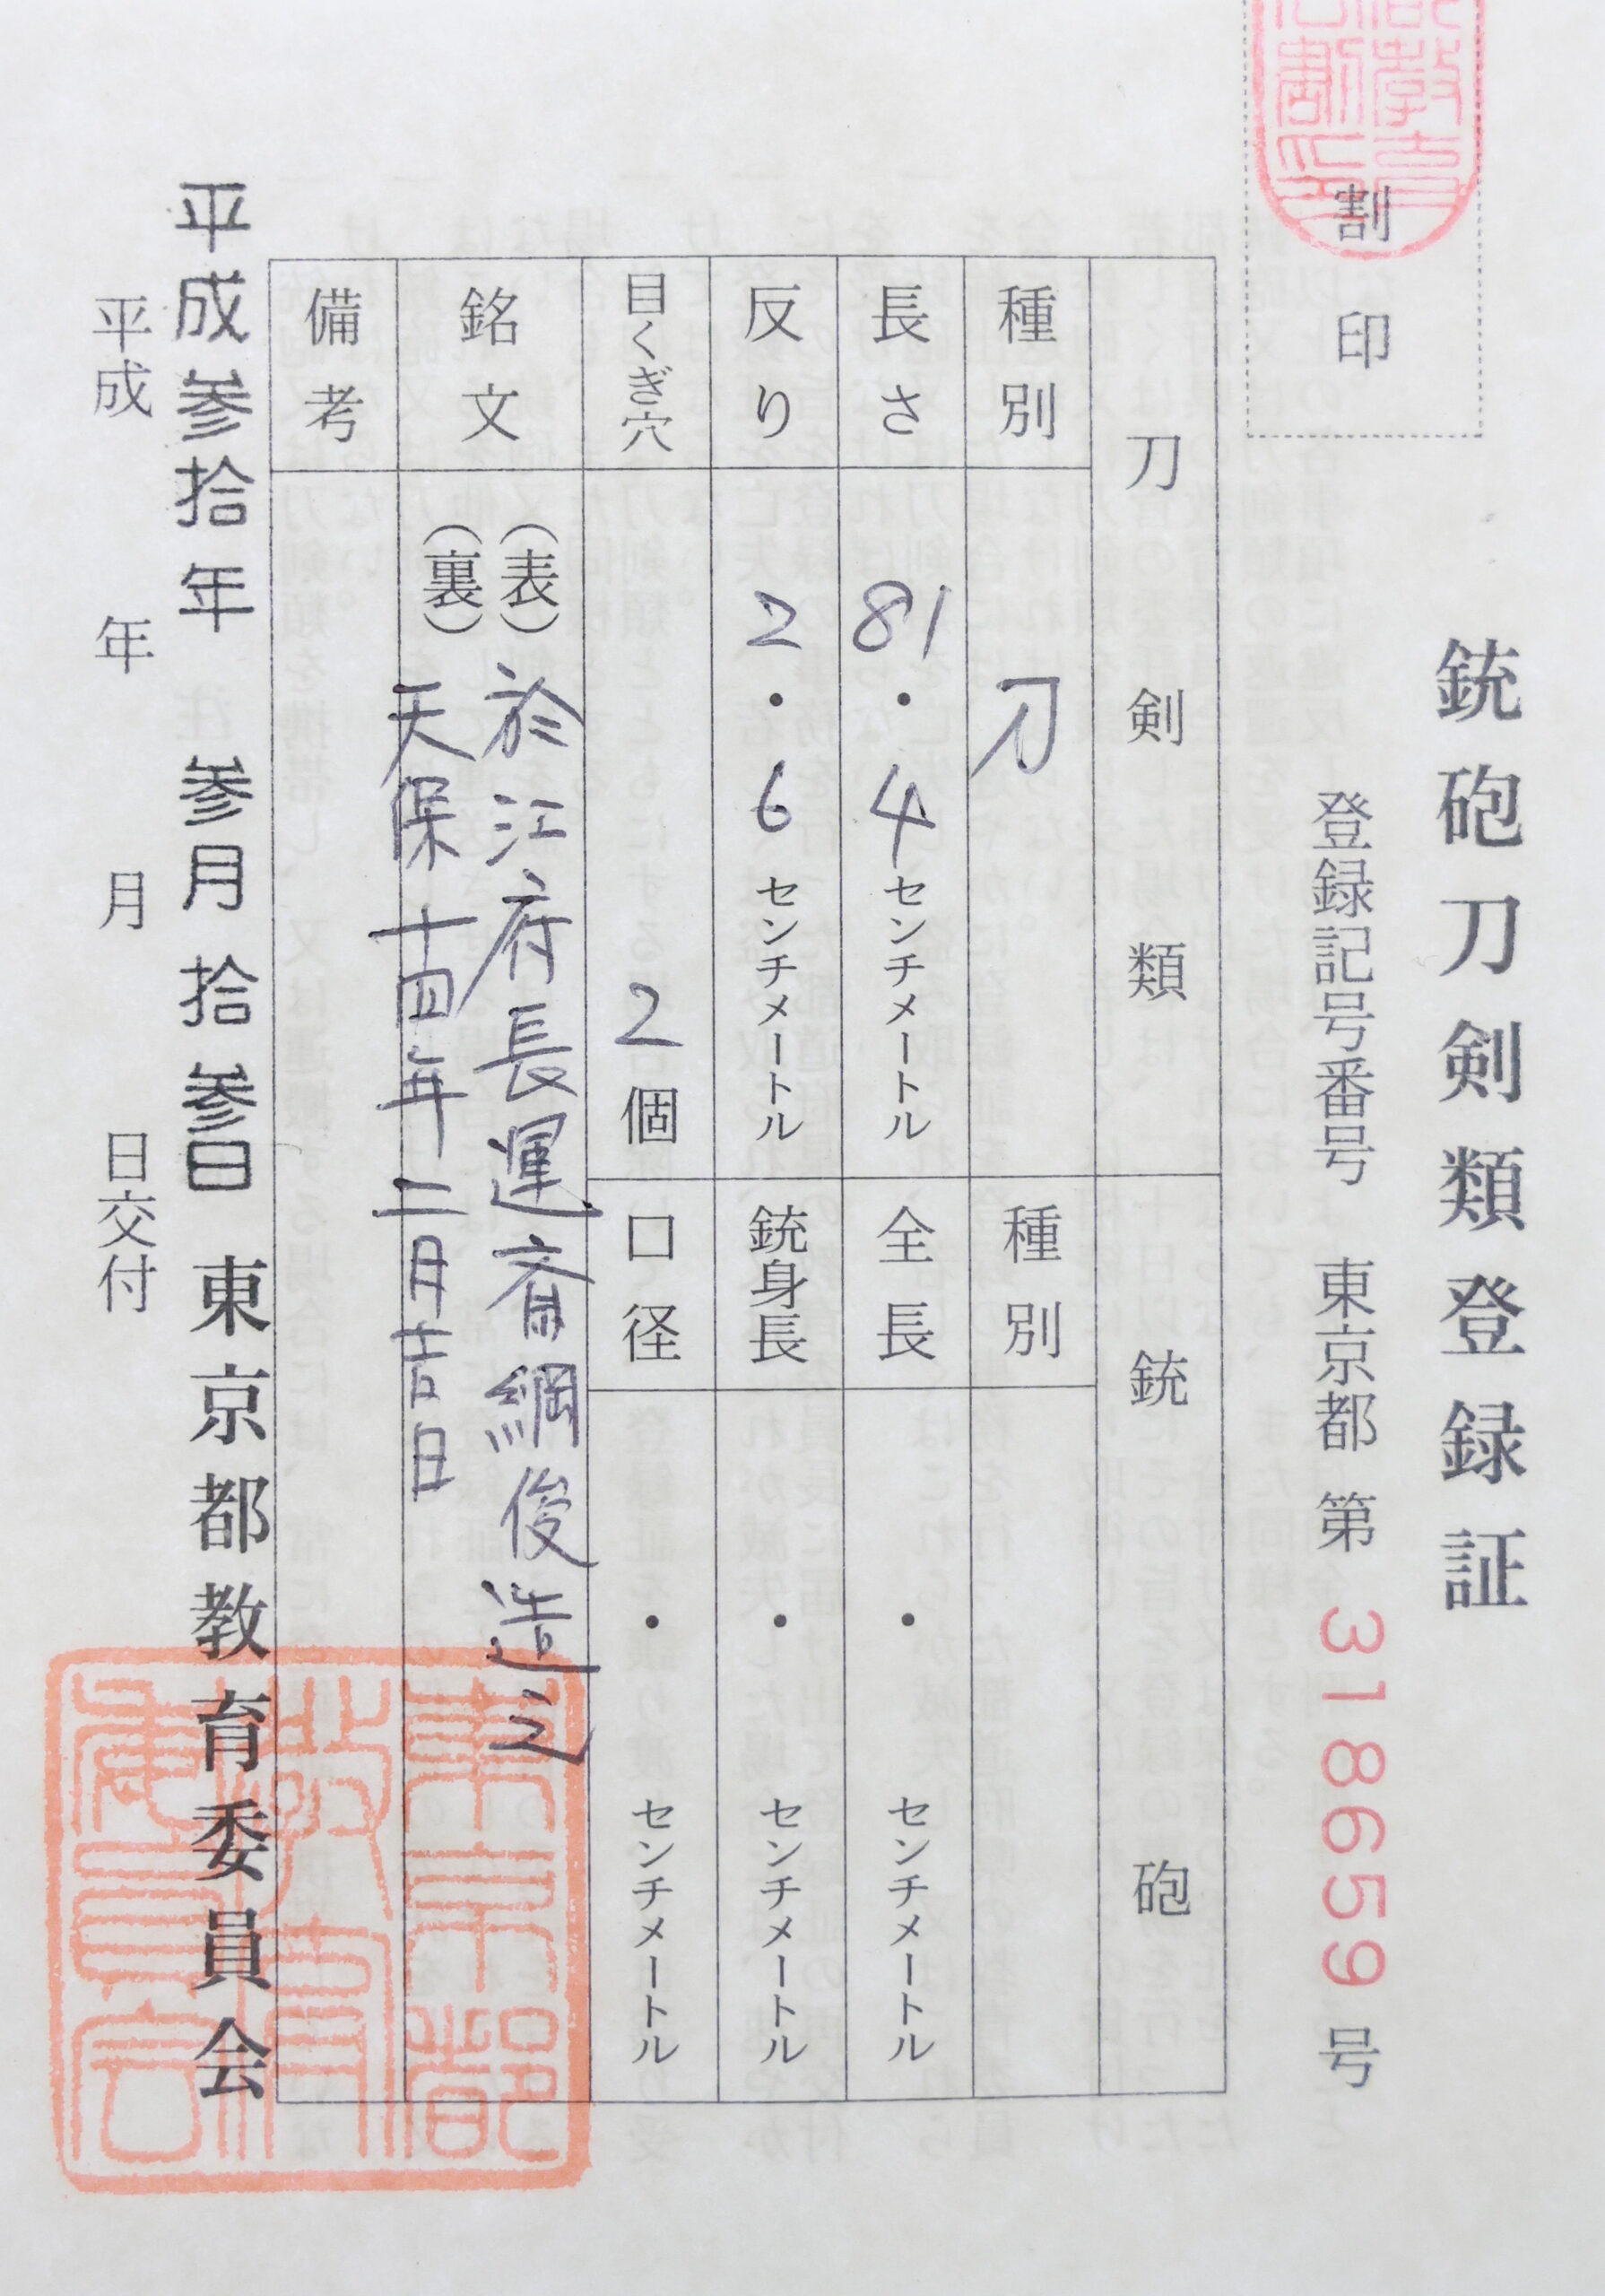 銃砲刀剣類登録証
割印
登録記号番号 東京都 第 318659 号
刀剣類
銃砲
種別 刀
種別
長さ 81・4センチメートル
全長 ・ センチメートル
反り 2・6センチメートル
銃身長 ・ センチメートル
目くぎ穴 2個
口径 ・ センチメートル
銘文
(表)於江府長運斎綱俊造之
(裏)天保十四年二月吉日
備考
平成参拾年 参月拾参日 東京都教育委員会
平成 年 月 日交付
東京都教育委員会